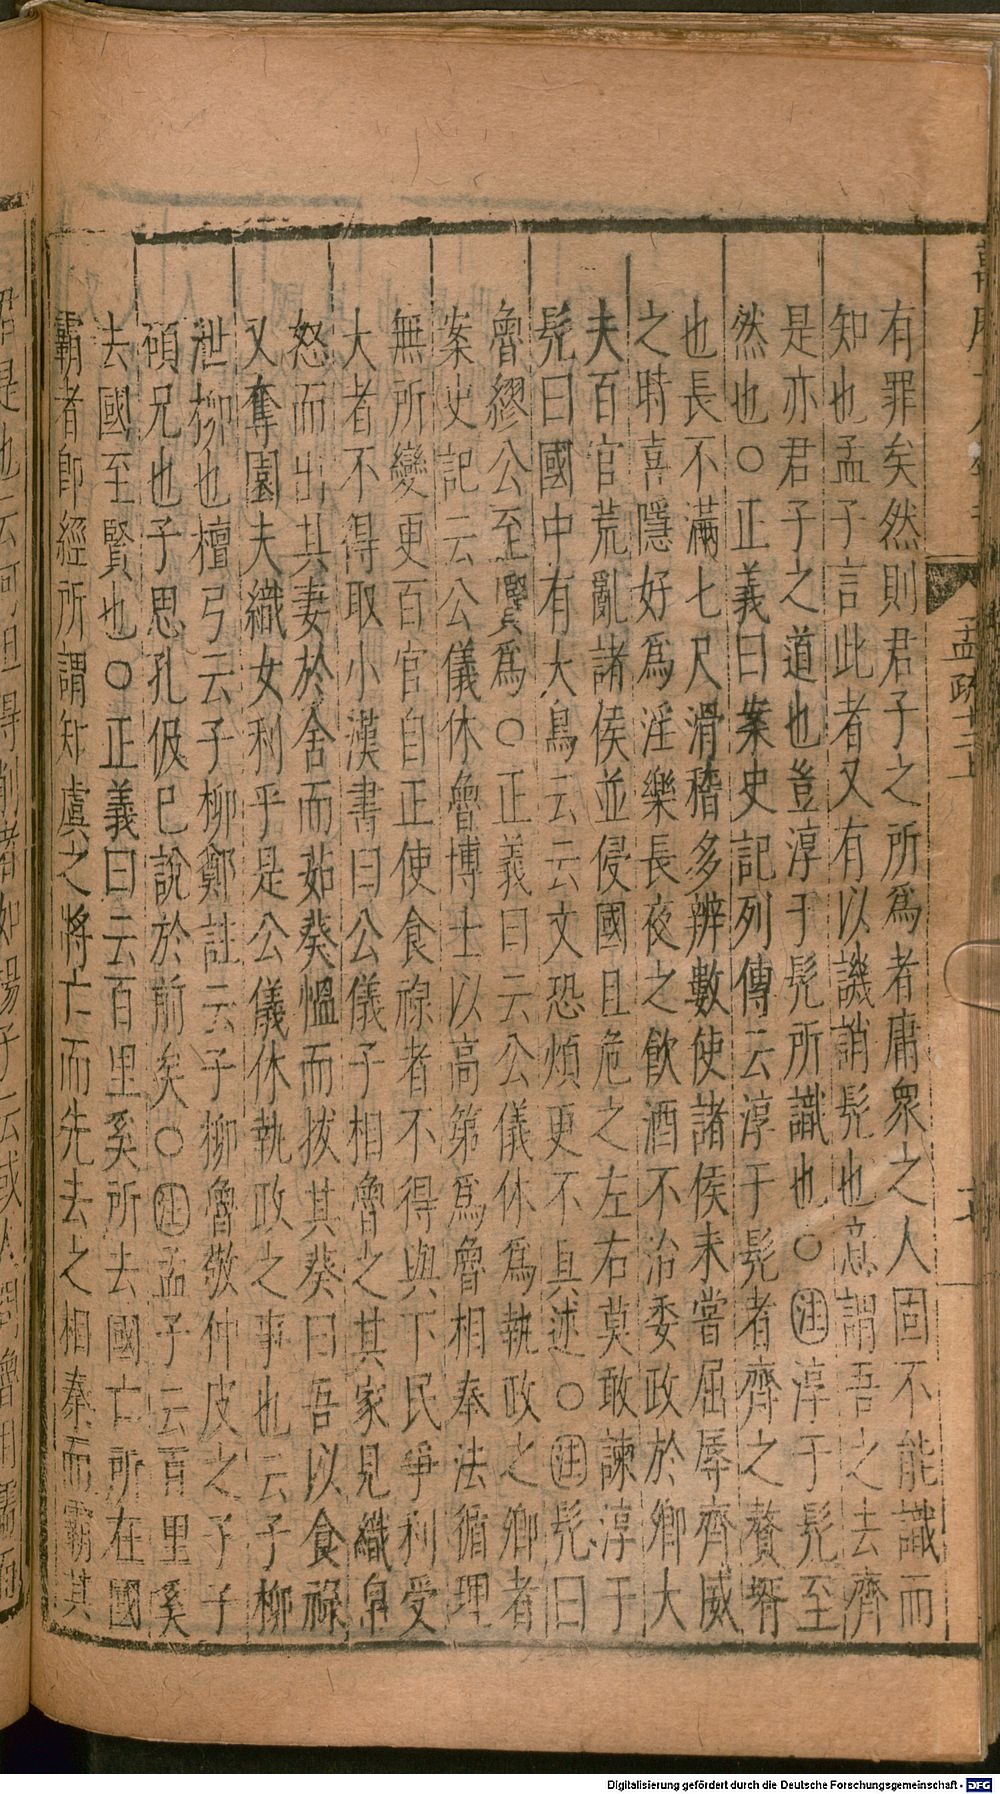 有罪矣然則君子之所爲者庸衆之人固不能識而
知也孟子言此者又有以譏誚髠也意謂吾之去齊
是亦君子之道也豈淳于髠所識也○注淳于髠至
然也○正義曰案史記列傳云淳于髠者齊之贅壻
也長不滿七尺滑稽多辨數使諸侯未嘗屈辱齊威
之時喜隱好爲淫樂長夜之飲酒不治委政於卿大
夫百官荒亂諸侯並侵國且危之左右莫敢諫淳于
髠曰國中有大鳥云云文恐煩更不具述○注髠曰
魯繆公至賢爲○正義曰云公儀休爲執政之卿者
案史記云公儀休魯博士以高第爲魯相奉法循理
無所變更百官自正使食祿者不得與下民爭利受
大者不得取小漢書曰公儀子相魯之其家見織帛
怒而出其妻於舍而茹葵慍而拔其葵曰吾以食祿
又奪園夫織女利乎是公儀休執政之事也云子柳
泄柳也檀弓云子柳鄭註云子柳魯敬仲皮之子子
碩兄也子思孔伋已說於前矣○注孟子云百里奚
去國至賢也○正義曰云百里奚所去國亡所在國
霸者卽經所謂知虞之將亡而先去之相秦而霸其
孟疏十二上
Digitalisierung gefördert durch die Deutsche Forschungsgemeinschaft - DFG